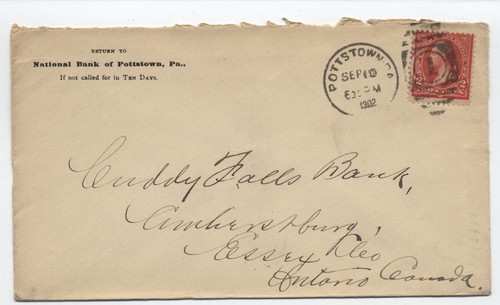 RETURN TO
National Bank of Pottstown, Pa.,
If not called for in TEN DAYS.
POTTSTOWN, PA.
SEP 10
6 PM
1902
Cuddy Falls Bank,
Amherstburg,
Essex Co
Ontario Canada.